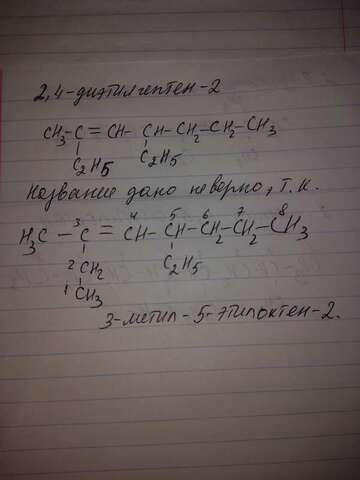 2,4-диэтилгептен-2
CH3-C=CH-CH-CH2-CH2-CH3
C2H5 C2H5
Название дано неверно, т.к.
H3C-C=CH-CH-CH2-CH2-CH3
3 4 5 6 7 8
2 CH2 C2H5
1 CH3
3-метил-5-этилоктен-2.